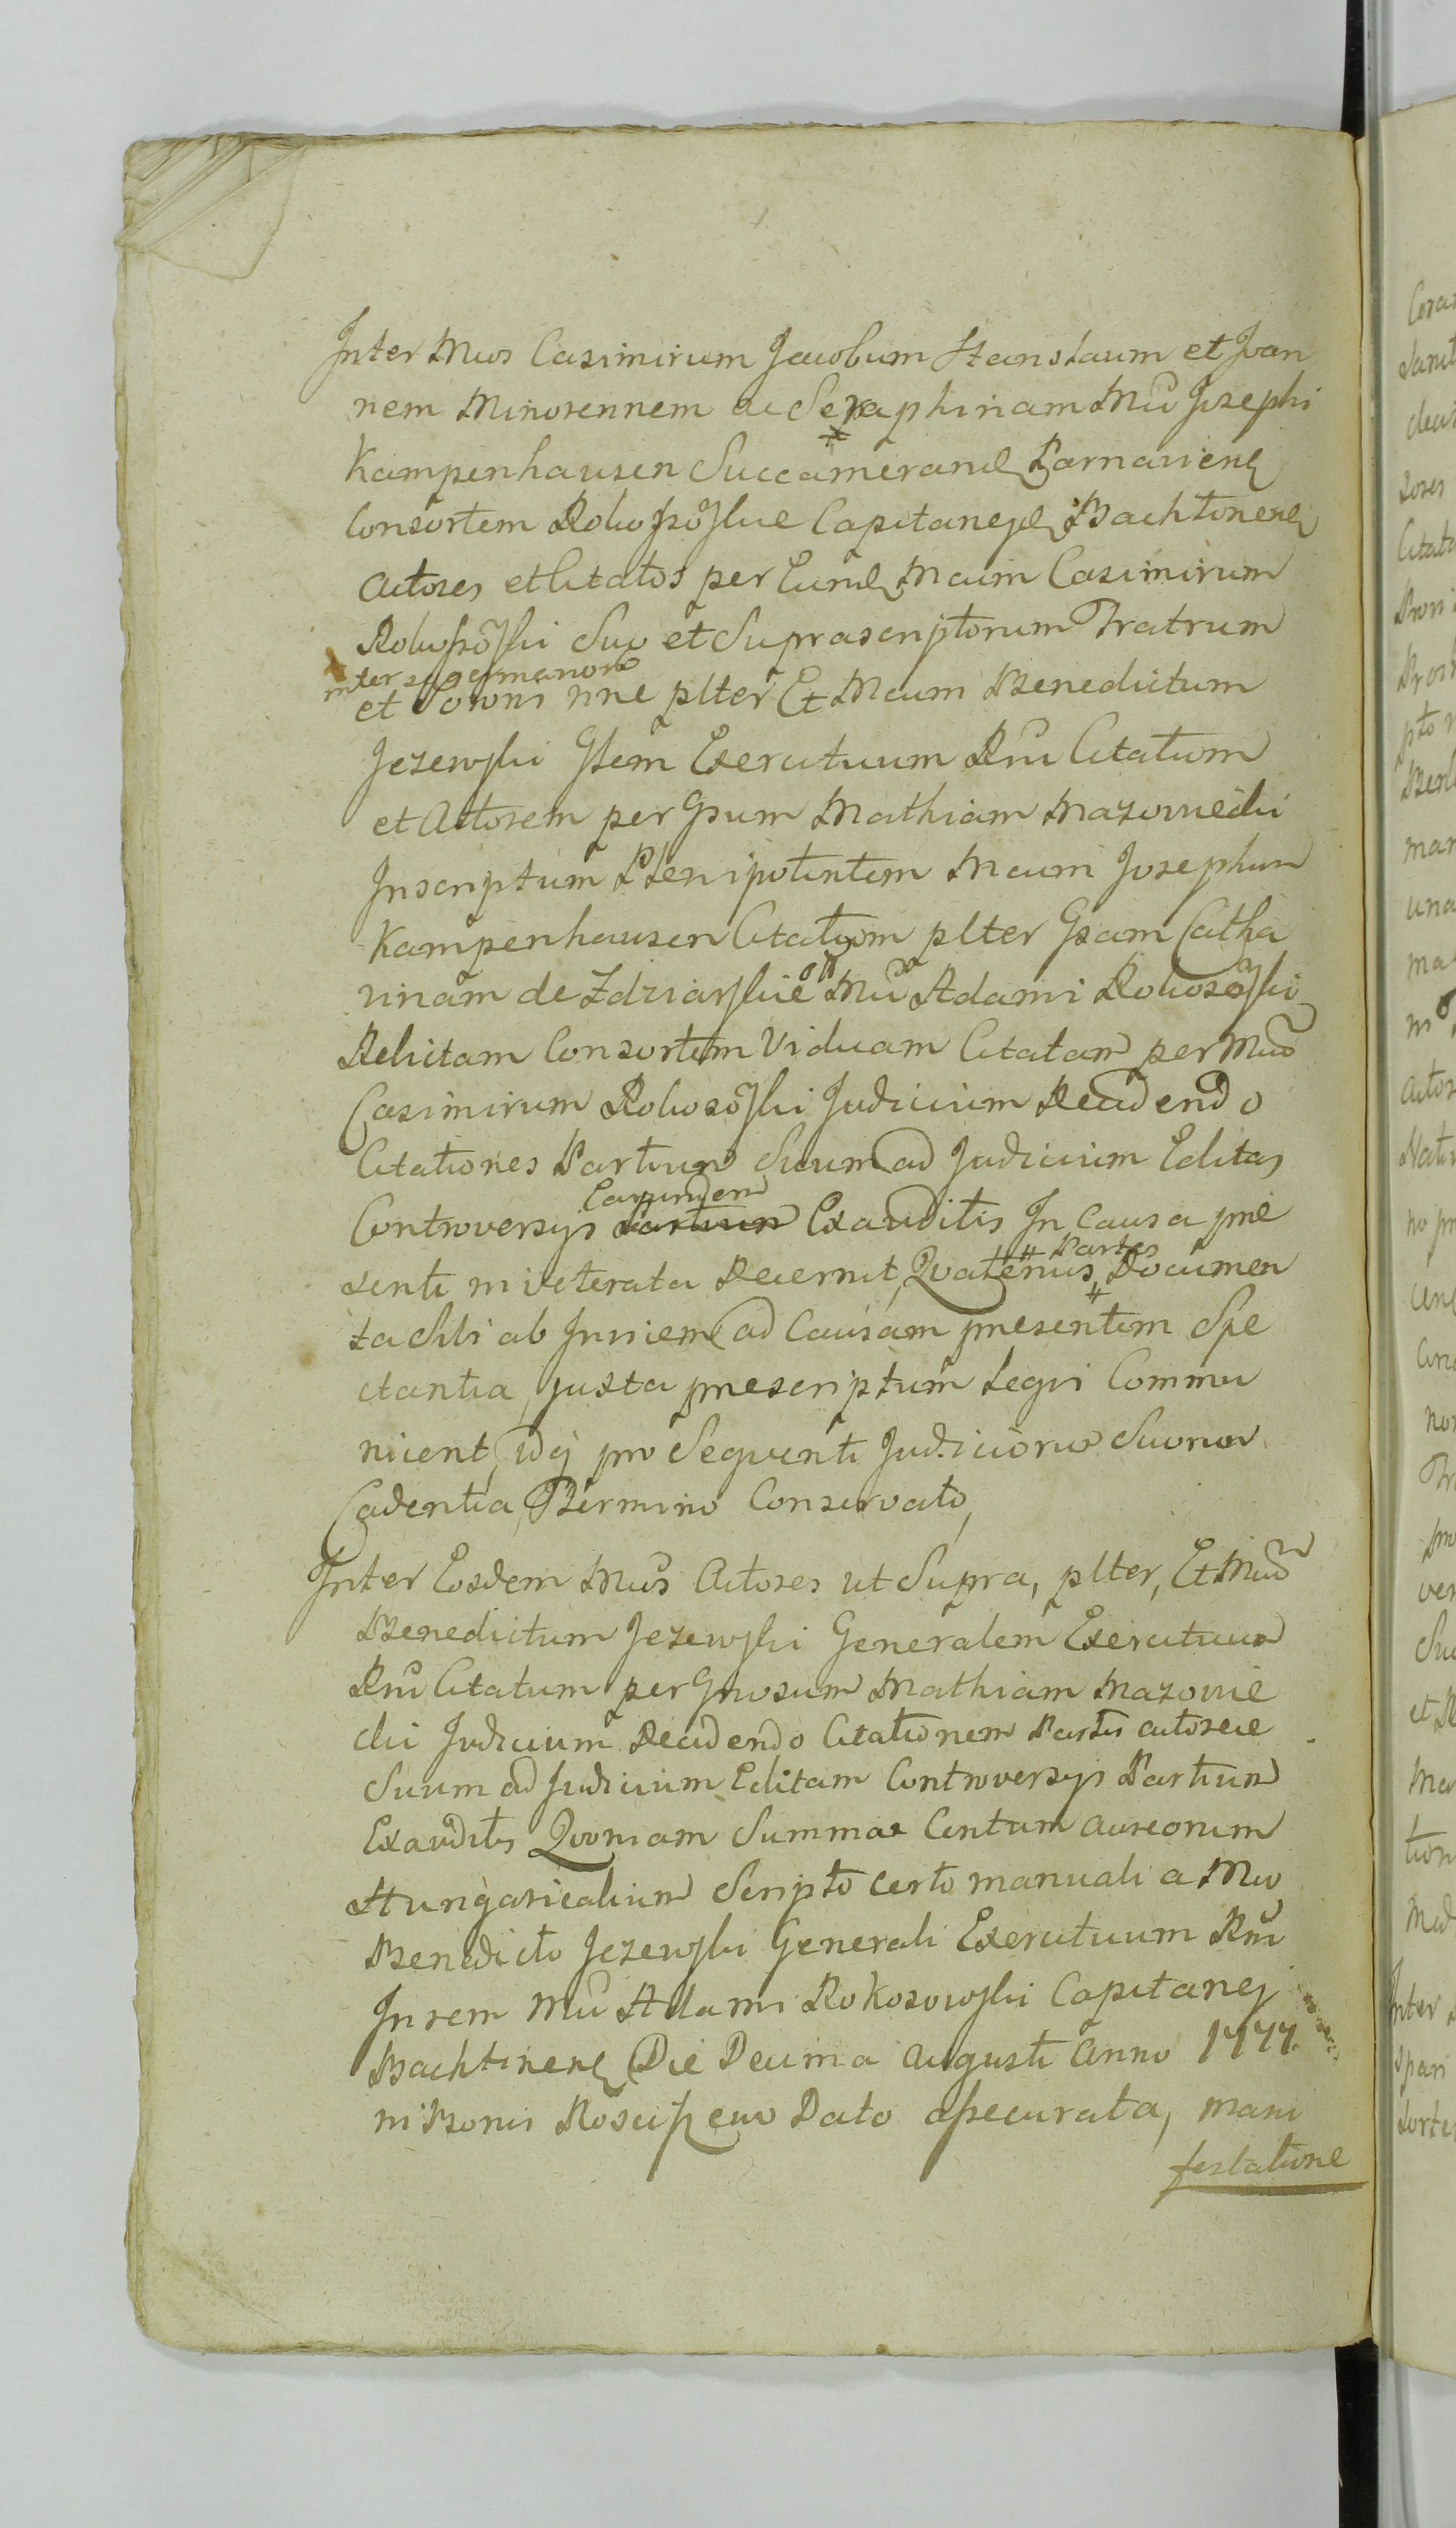 Inter Mcos Casimirum Jacobum Stanslaum et Joan
nem Minorennem ac Seraphinam Mci Josephi
Kampenhausen Succamerand Parnaviens
Consortem Rokossoskie Capitanejd Bachtinens
Actores et Citatos per Eund Mcum Casimirum
Rokossoski Suo et Suprascriptorum Fratrum
inter se germanorum
et Sororis nne plter Et Mcum Benedictum
Jezewski Glem Exercituum Rni Citatum
et Actorem per Gsum Mathiam Mazowiecki
Inscriptum Plenipotentem Mcum Josephum
Kampenhausen Citatum plter Gsam Catha
rinam de Zdziarskie olt Mci Adami Rokososki
Relictam Consortem Viduam Citatam per Mcum
Casimirum Rokososki Judicium Recidendo
Citationes Partium Suum ad Judicium Editas
Controversys Partium Earundem Exauditis In Causa prae
senti in iveterata Decernit, Quatenus # Partes # Documen
ta Sibi ab Invicem ad Causam praesentem Spe
ctantia, juxta praescriptum Legis Commu
nicent, idq pro Sequenti Judiciorum Suorum
Cadentia, Termino Conservato,
Inter Eosdem Mcos Actores ut Supra, plter, Et Mcum
Benedictum Jezewski Generalem Exercituum
Rni Citatum per Gnosum Mathiam Mazowie
cki Judicium Recidendo Citationem Partis actoreae
Suum ad Judicium Editam Controversys Partium
Exauditis Quoniam Summae Centum aureorum
Hungaricalium Scripto certo manuali a Mco
Benedicto Jezewski Generali Exercituum Rni
In rem Mci Adami Rokosowski Capitanej
Bachtinens Die Decima Augusti Anno 1777.
in Bonis Rosciszewo Dato assecurata, mani
festatione